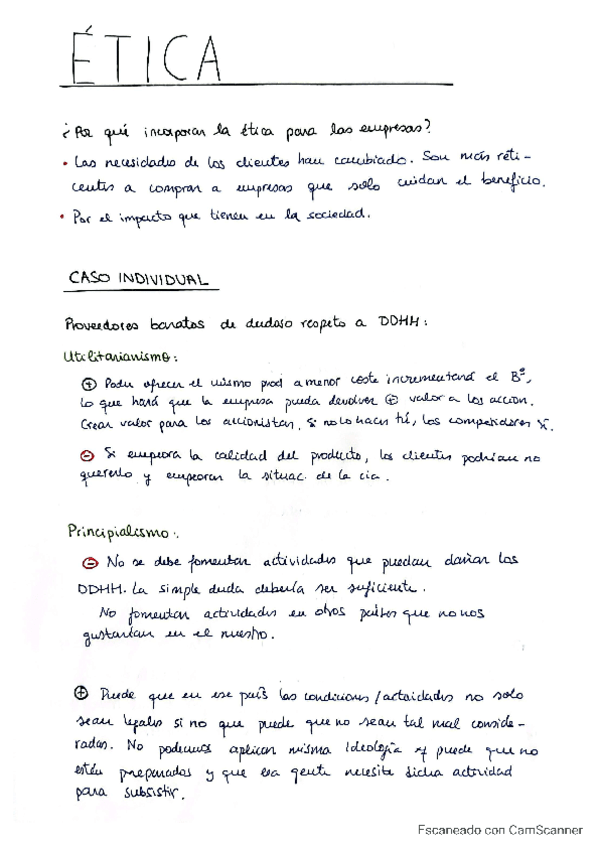 ÉTICA
¿Por qué incorporan la ética para las empresas?
• Las necesidades de los clientes han cambiado. Son más reti-
centes a comprar a empresas que solo cuidan el beneficio.
• Por el impacto que tienen en la sociedad.
CASO INDIVIDUAL
Proveedores baratos de dudoso respeto a DDHH:
Utilitarianismo:
⊕ Poder ofrecer el mismo prod a menor coste incrementará el Bº,
lo que hará que la empresa pueda devolver ⊕ valor a los accion.
Crear valor para los accionistas. Si no lo haces tú, los competidores sí.
⊖ Si empeora la calidad del producto, los clientes podrían no
quererlo y empeorar la situac. de la cia.
Principialismo:
⊖ No se debe fomentar actividades que puedan dañar los
DDHH. La simple duda debería ser suficiente.
No fomentar actividades en otros países que no nos
gustarían en el nuestro.
⊕ Puede que en ese país las condiciones/actividades no solo
sean legales si no que puede que no sean tal mal conside-
radas. No podemos aplicar misma ideología puede que no
estén preparados y que esa gente necesite dicha actividad
para subsistir.
Escaneado con CamScanner